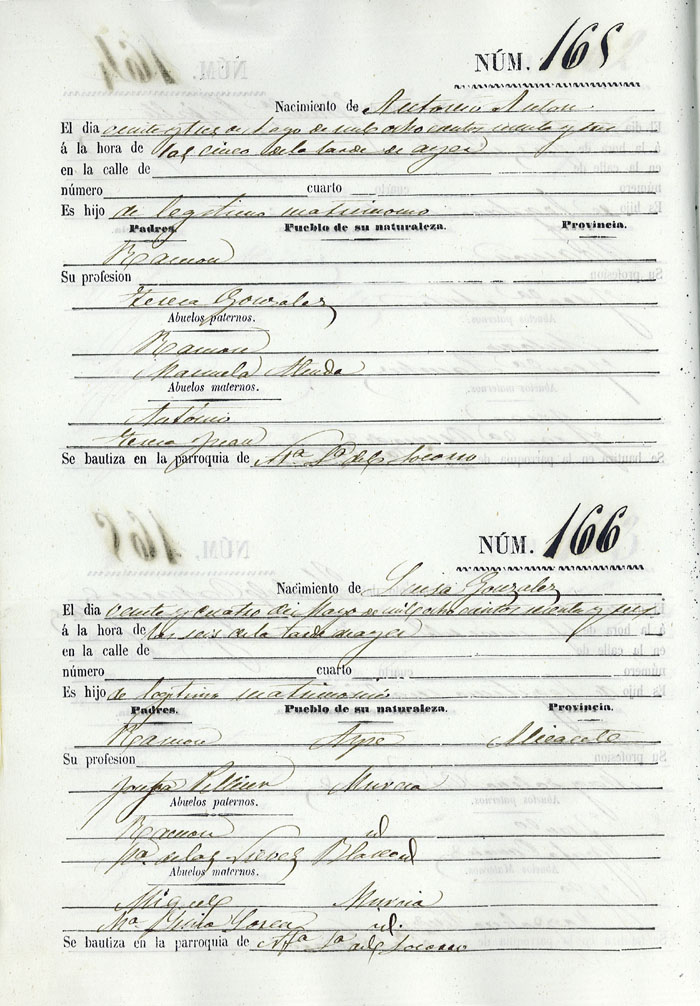 NÚM. 165
Nacimiento de Antonio Anton
El dia veinte y tres de Mayo de mil ocho cientos y seis
á la hora de las cinco de la tarde de ayer
en la calle de
número cuarto
Es hijo de legitimo matrimonio
Padres. Pueblo de su naturaleza. Provincia.
Ramon
Su profesion
Teresa Gonzalez
Abuelos paternos.
Ramon
Manuela
Abuelos maternos.
Antonio
Teresa Juan
Se bautiza en la parroquia de Nª Sª del Socorro
NÚM. 166
Nacimiento de Luisa Gonzalez
El dia veinte y cuatro de Mayo de mil ocho cientos y seis
á la hora de las seis de la tarde de ayer
en la calle de
número cuarto
Es hijo de legitimo matrimonio
Padres. Pueblo de su naturaleza. Provincia.
Ramon Aspe Alicante
Su profesion
Josefa Murcia
Abuelos paternos.
Ramon id
Mª de las Nieves id
Abuelos maternos.
Miguel Murcia
Mª id.
Se bautiza en la parroquia de Nª Sª del Socorro